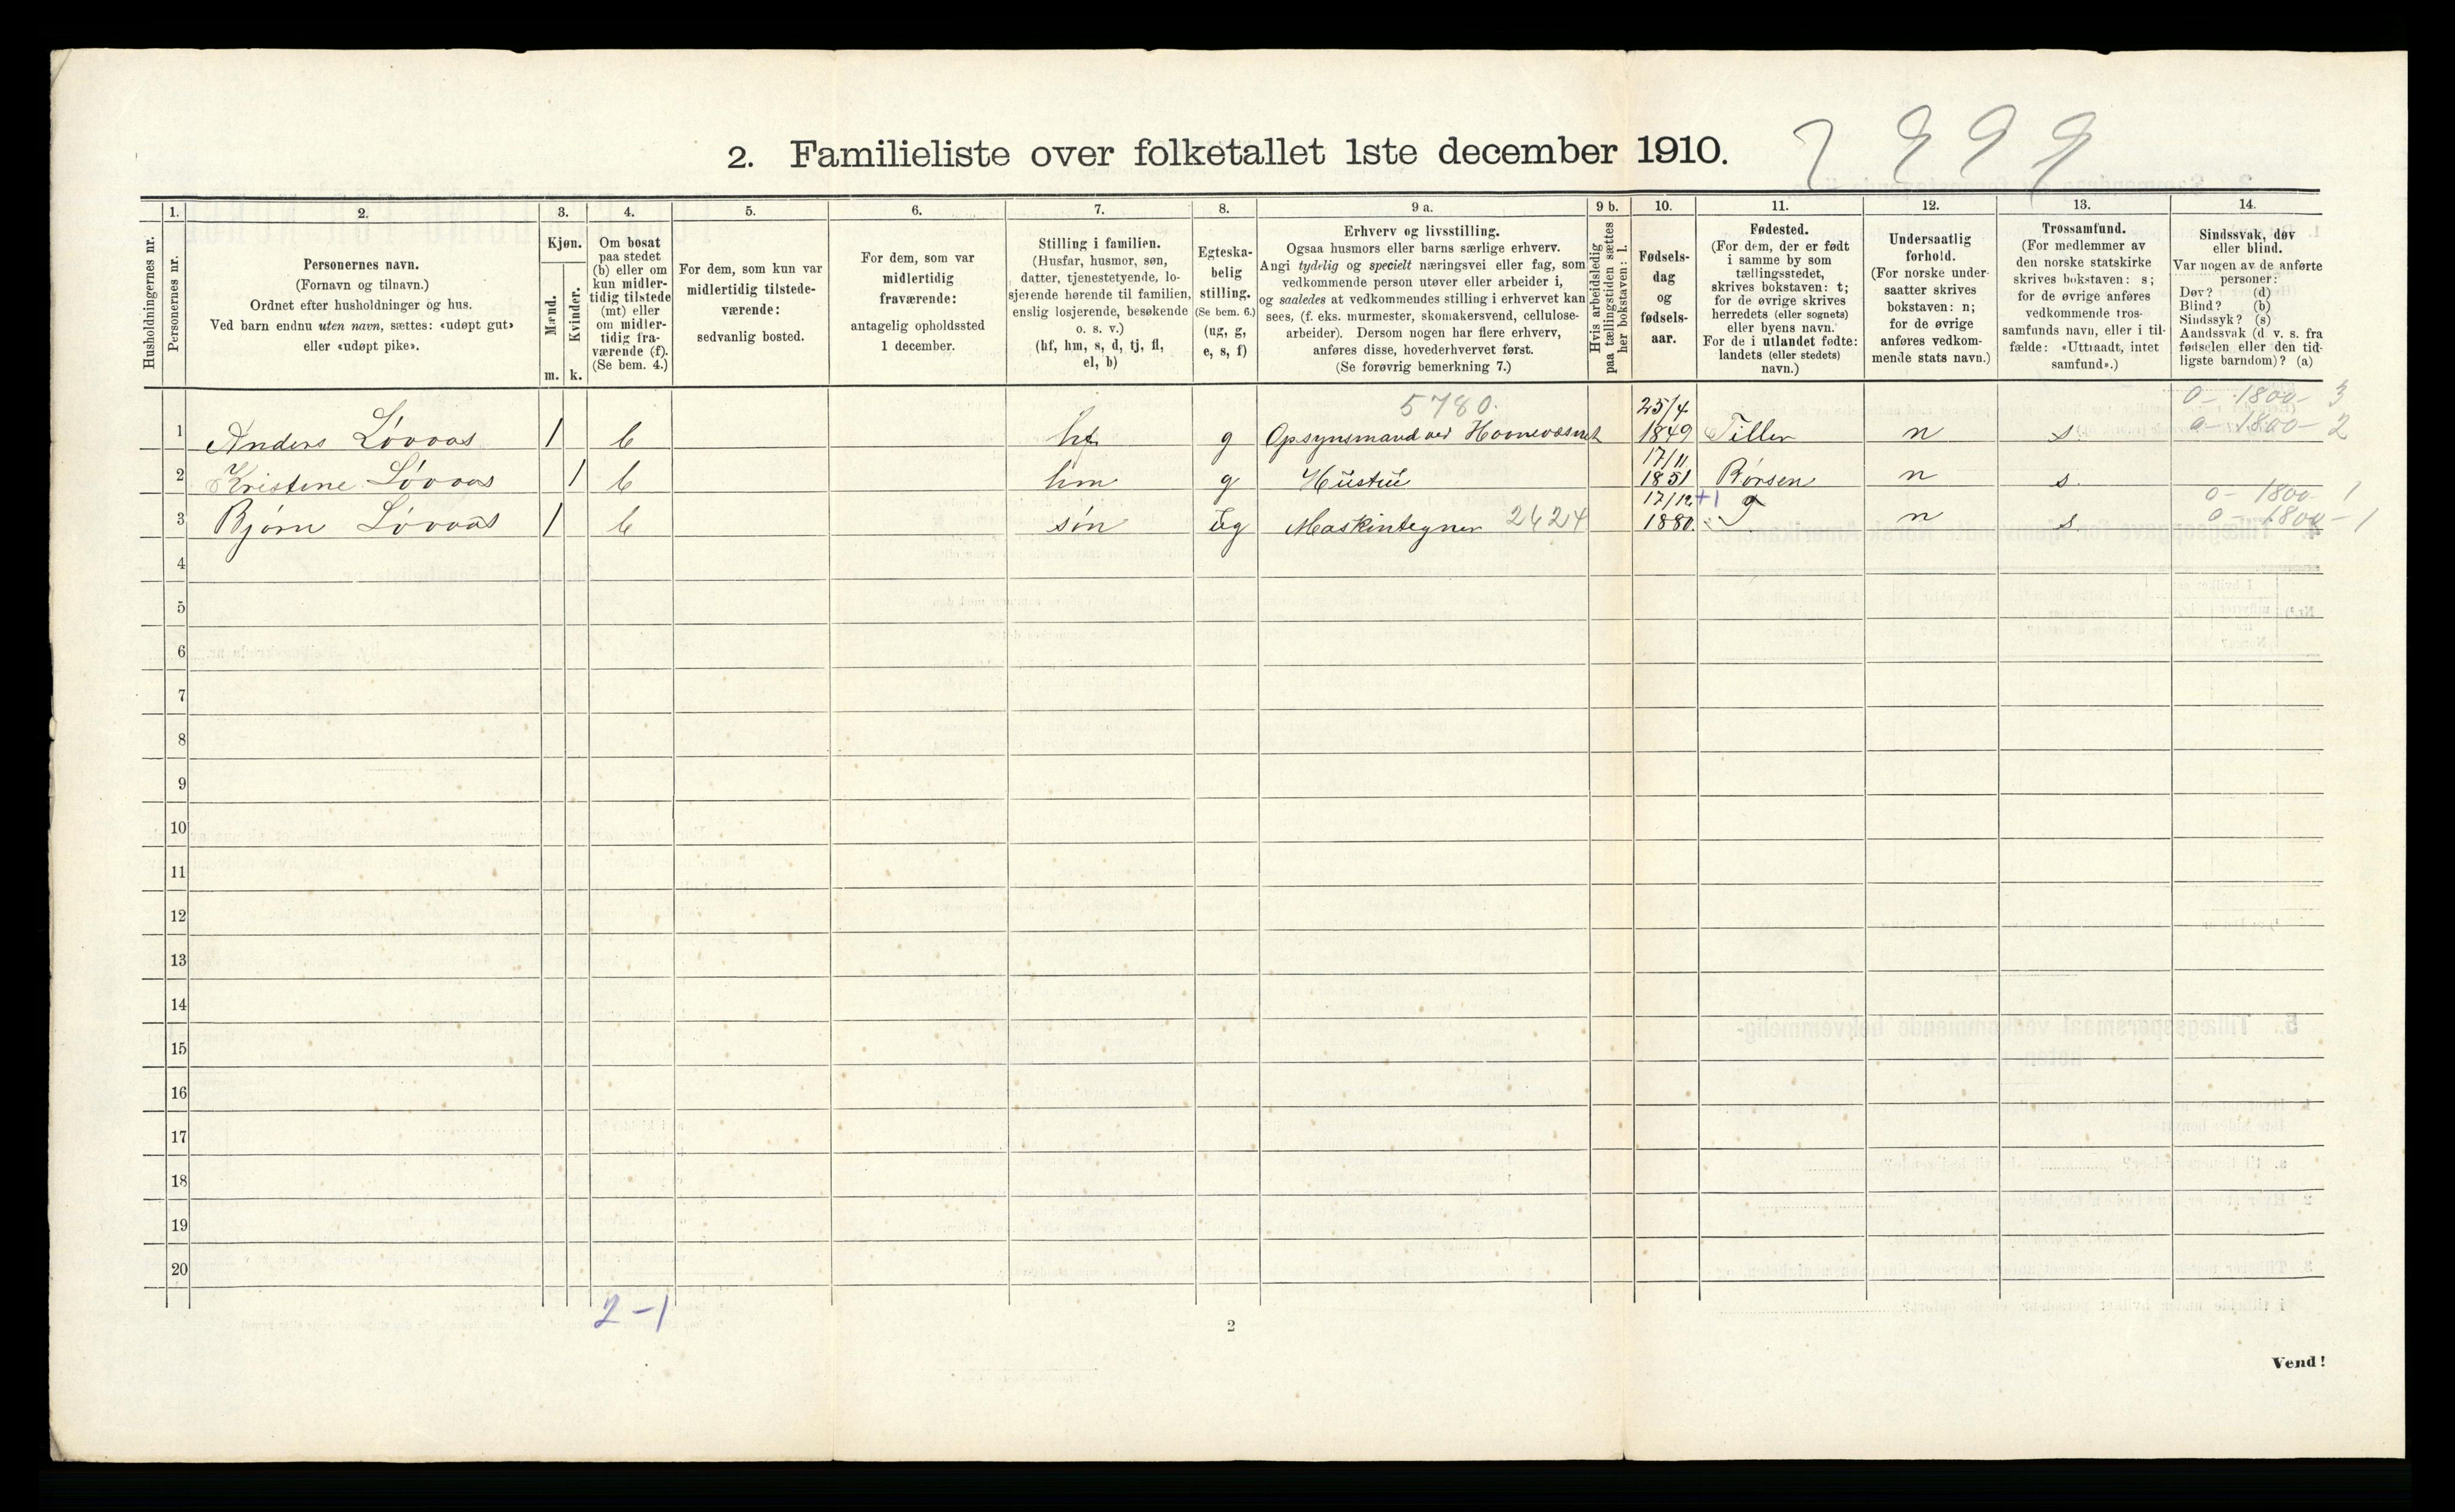 2. Familieliste over folketallet 1ste december 1910.
Husholdningernes nr.
1.
Personernes nr.
2.
Personernes navn.
(Fornavn og tilnavn.)
Ordnet efter husholdninger og hus.
Ved barn endnu uten navn, sættes: «udøpt gut»
eller «udøpt pike».
3.
Kjøn.
Mænd.
Kvinder.
m. k.
4.
Om bosat
paa stedet
(b) eller om
kun midler-
tidig tilstede
(mt) eller
om midler-
tidig fra-
værende (f).
(Se bem. 4.)
5.
For dem, som kun var
midlertidig tilstede-
værende:
sedvanlig bosted.
6.
For dem, som var
midlertidig
fraværende:
antagelig opholdssted
1 december.
7.
Stilling i familien.
(Husfar, husmor, søn,
datter, tjenestetyende, lo-
sjerende hørende til familien,
enslig losjerende, besøkende
o. s. v.)
(hf, hm, s, d, tj, fl,
el, b)
8.
Egteska-
belig
stilling.
(Se bem. 6.)
(ug, g,
e, s, f)
9 a.
Erhverv og livsstilling.
Ogsaa husmors eller barns særlige erhverv.
Angi tydelig og specielt næringsvei eller fag, som
vedkommende person utøver eller arbeider i,
og saaledes at vedkommendes stilling i erhvervet kan
sees, (f. eks. murmester, skomakersvend, cellulose-
arbeider). Dersom nogen har flere erhverv,
anføres disse, hovederhvervet først.
(Se forøvrig bemerkning 7.)
9 b.
Hvis arbeidsledig
paa tællingstiden sættes
her bokstaven: l.
10.
Fødsels-
dag
og
fødsels-
aar.
11.
Fødested.
(For dem, der er født
i samme by som
tællingsstedet,
skrives bokstaven: t;
for de øvrige skrives
herredets (eller sognets)
eller byens navn.
For de i utlandet fødte:
landets (eller stedets)
navn.)
12.
Undersaatlig
forhold.
(For norske under-
saatter skrives
bokstaven: n;
for de øvrige
anføres vedkom-
mende stats navn.)
13.
Trossamfund.
(For medlemmer av
den norske statskirke
skrives bokstaven: s;
for de øvrige anføres
vedkommende tros-
samfunds navn, eller i til-
fælde: «Uttraadt, intet
samfund».)
14.
Sindssvak, døv
eller blind.
Var nogen av de anførte
personer:
Døv? (d)
Blind? (b)
Sindssyk? (s)
Aandssvak (d. v. s. fra
fødselen eller den tid-
ligste barndom)? (a)
5780.
25/4
0 - 1800 - 3
1 Anders Løvaas 1 b hf g Opsynsmand ved Havnevæsnet 1849 Tiller n s 0 - 1800 - 2
17/11
2 Kristine Løvaas 1 b hm g Hustru 1851 Børsen n s
17/12 +1 0 - 1800 - 1
3 Bjørn Løvaas 1 b søn ug Maskintegner 2424 1880. n s 0 - 1800 - 1
4
5
6
7
8
9
10
11
12
13
14
15
16
17
18
19
20
2 - 1
2
Vend!